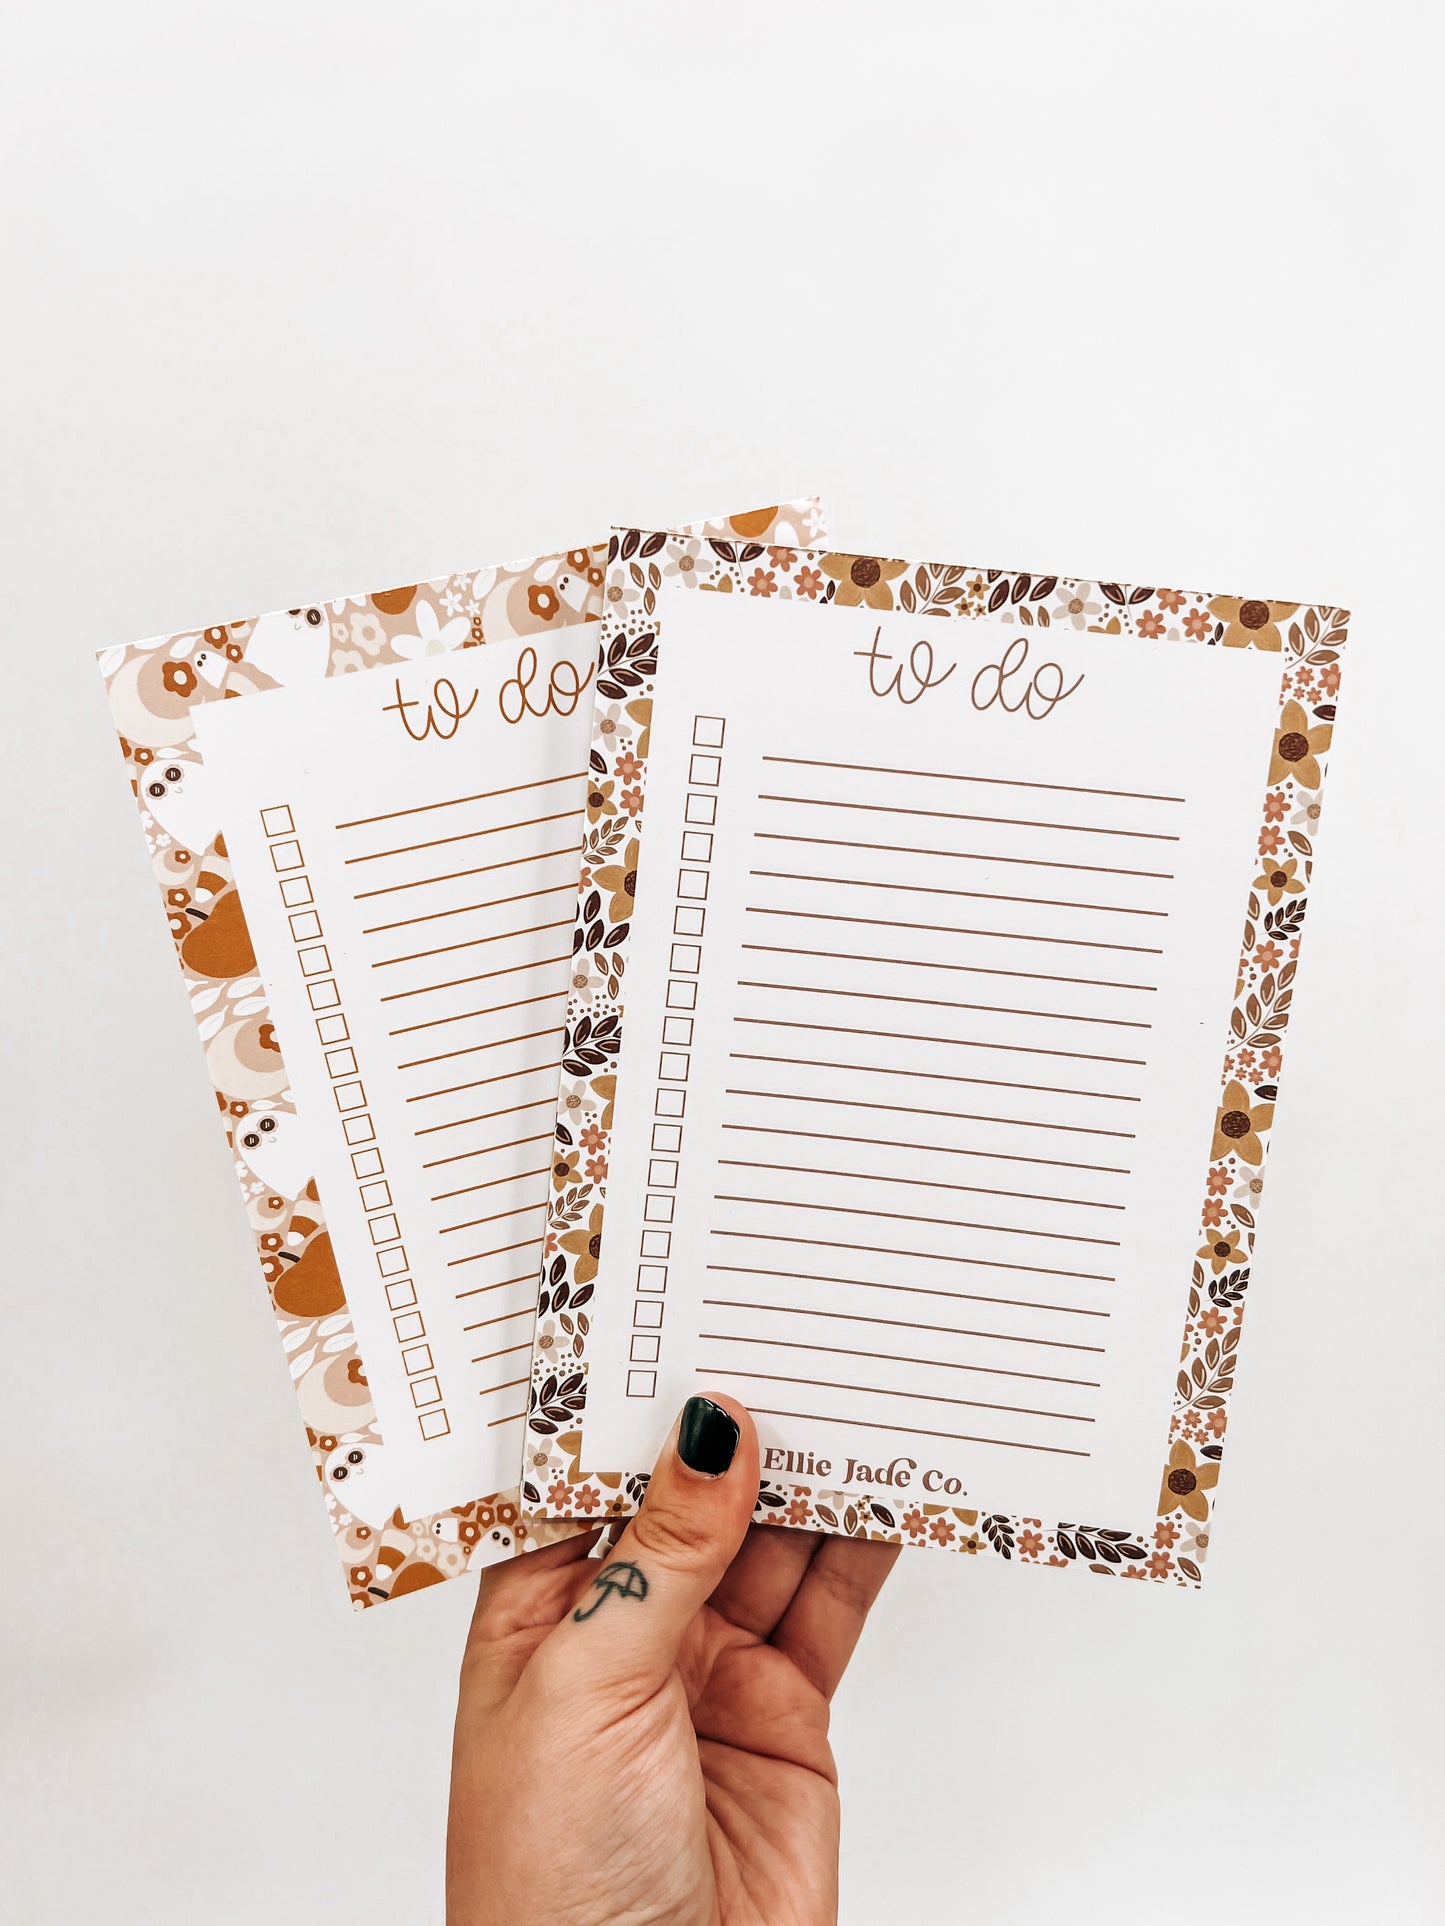 to do
to do
Ellie Jade Co.